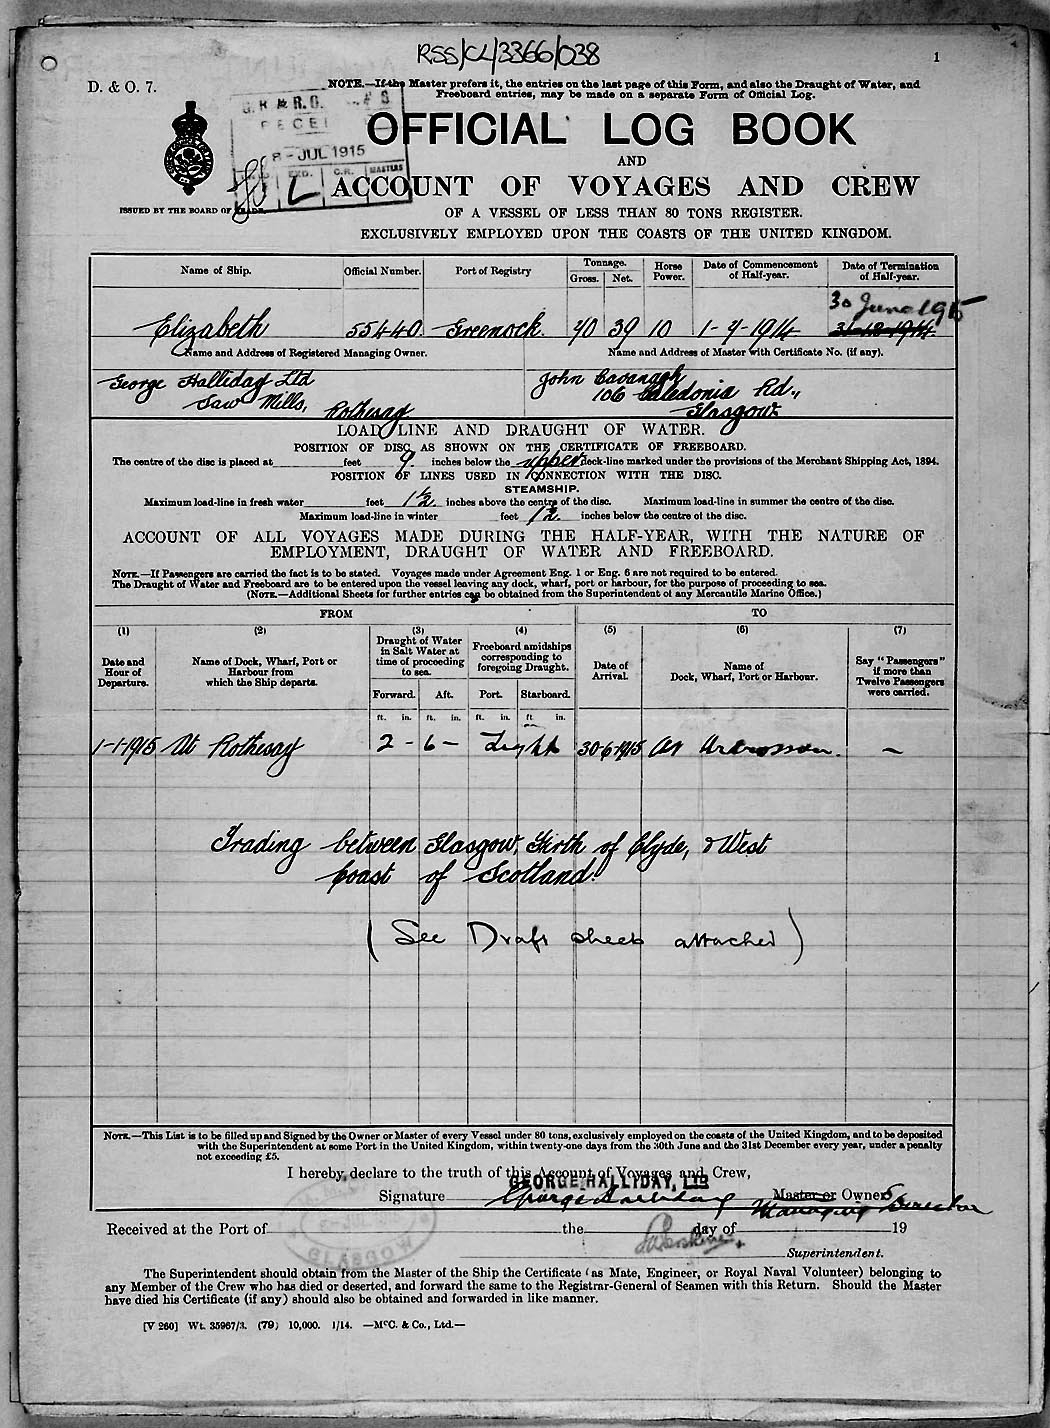 RSS/CL/3366/038
1
D. & O. 7.
NOTE.—If the Master prefers it, the entries on the last page of this Form, and also the Draught of Water, and
Freeboard entries, may be made on a separate Form of Official Log.
8 - JUL 1915
OFFICIAL LOG BOOK
AND
ACCOUNT OF VOYAGES AND CREW
ISSUED BY THE BOARD OF TRADE.
OF A VESSEL OF LESS THAN 80 TONS REGISTER.
EXCLUSIVELY EMPLOYED UPON THE COASTS OF THE UNITED KINGDOM.
Name of Ship. Official Number. Port of Registry Tonnage. Gross. Net. Horse Power. Date of Commencement of Half-year. Date of Termination of Half-year.
30 June 1915
Elizabeth 55440 Greenock 40 39 10 1-7-1914 31-12-1914
Name and Address of Registered Managing Owner. Name and Address of Master with Certificate No. (if any).
George Halliday Ltd John Cavanagh
Saw Mills, Rothesay 106 Caledonia Rd.,
Glasgow
LOAD LINE AND DRAUGHT OF WATER.
POSITION OF DISC AS SHOWN ON THE CERTIFICATE OF FREEBOARD.
The centre of the disc is placed at feet 9 inches below the upper deck-line marked under the provisions of the Merchant Shipping Act, 1894.
POSITION OF LINES USED IN CONNECTION WITH THE DISC.
STEAMSHIP.
Maximum load-line in fresh water feet 1½ inches above the centre of the disc. Maximum load-line in summer the centre of the disc.
Maximum load-line in winter feet 1½ inches below the centre of the disc.
ACCOUNT OF ALL VOYAGES MADE DURING THE HALF-YEAR, WITH THE NATURE OF
EMPLOYMENT, DRAUGHT OF WATER AND FREEBOARD.
NOTE.—If Passengers are carried the fact is to be stated. Voyages made under Agreement Eng. 1 or Eng. 6 are not required to be entered.
The Draught of Water and Freeboard are to be entered upon the vessel leaving any dock, wharf, port or harbour, for the purpose of proceeding to sea.
(NOTE.—Additional Sheets for further entries can be obtained from the Superintendent of any Mercantile Marine Office.)
FROM TO
(1) (2) (3) (4) (5) (6) (7)
Date and Hour of Departure. Name of Dock, Wharf, Port or Harbour from which the Ship departs. Draught of Water in Salt Water at time of proceeding to sea. Freeboard amidships corresponding to foregoing Draught. Date of Arrival. Name of Dock, Wharf, Port or Harbour. Say "Passengers" if more than Twelve Passengers were carried.
Forward. Aft. Port. Starboard.
ft. in. ft. in. ft. in. ft. in.
1-1-1915 At Rothesay 2 - 6 - Light 30-6-1915 At Ardrossan. —
Trading between Glasgow, Firth of Clyde, & West
Coast of Scotland.
(See Draft sheet attached)
NOTE.—This List is to be filled up and Signed by the Owner or Master of every Vessel under 80 tons, exclusively employed on the coasts of the United Kingdom, and to be deposited
with the Superintendent at some Port in the United Kingdom, within twenty-one days from the 30th June and the 31st December every year, under a penalty
not exceeding £5.
I hereby declare to the truth of this Account of Voyages and Crew,
GEORGE HALLIDAY, LTD
Signature George Halliday Master or Owners
Managing Director
Received at the Port of the day of 19
GLASGOW
Superintendent.
The Superintendent should obtain from the Master of the Ship the Certificate (as Mate, Engineer, or Royal Naval Volunteer) belonging to
any Member of the Crew who has died or deserted, and forward the same to the Registrar-General of Seamen with this Return. Should the Master
have died his Certificate (if any) should also be obtained and forwarded in like manner.
[V 260] Wt. 35967/3. (79) 10,000. 1/14. —McC. & Co., Ltd.—